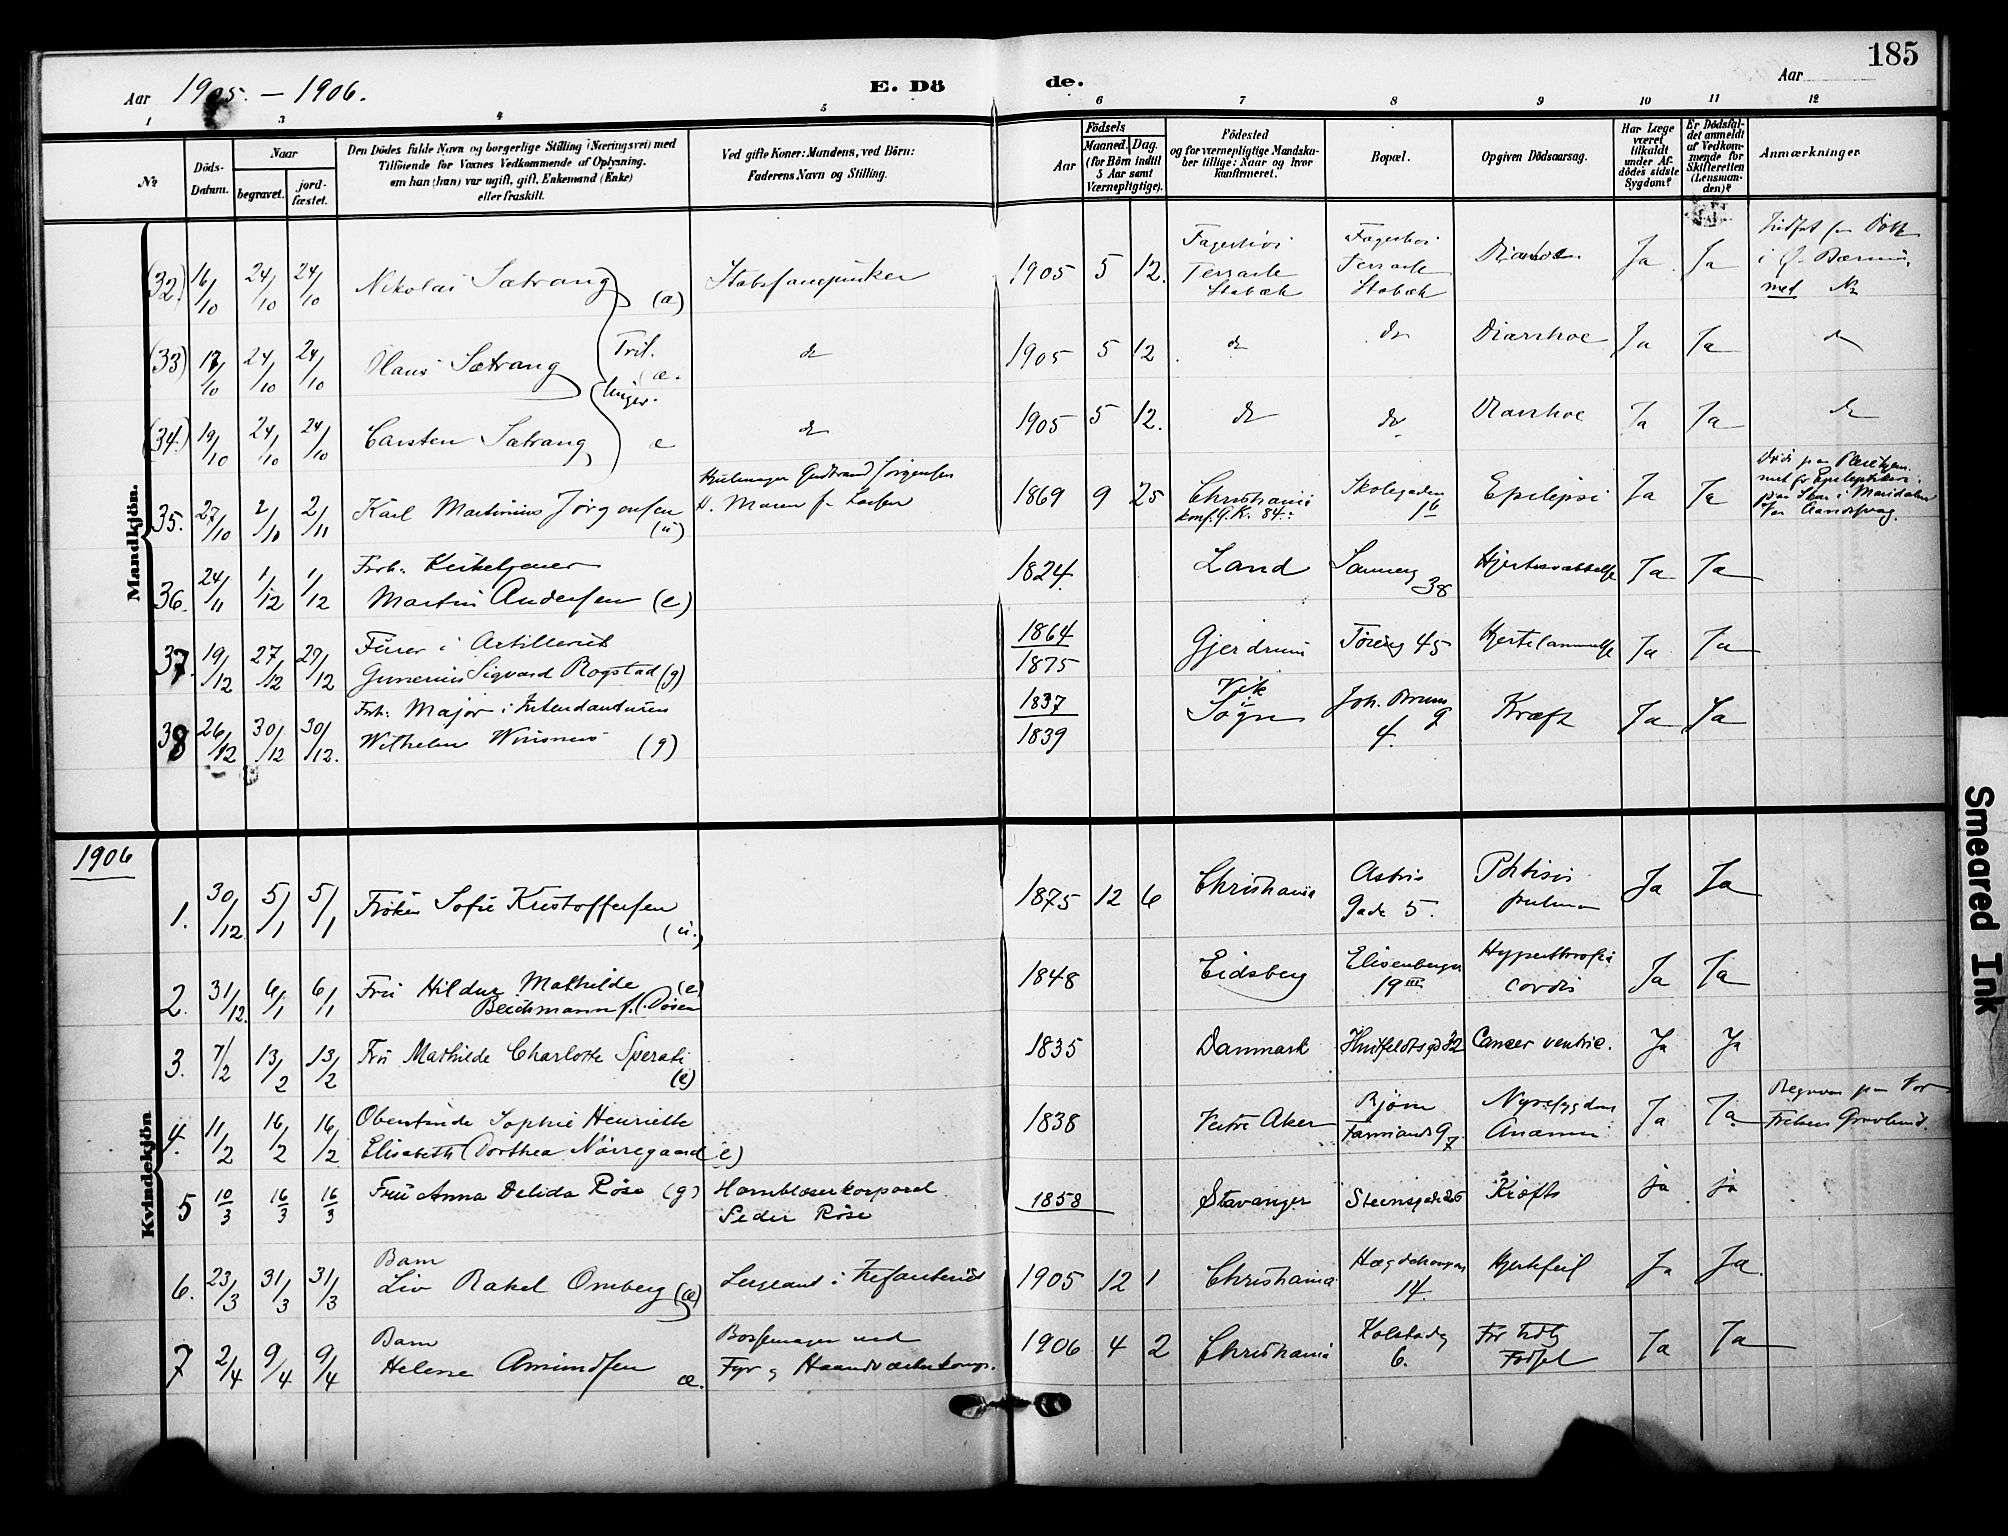 185
Aar 1905. – 1906.
E. Dö de.
Aar
1 3 4 5 6 7 8 9 10 11 12
№
Döds-
Datum.
Naar
begravet.
jord-
fæstet.
Den Dödes fulde Navn og borgerlige Stilling (Næringsvei) med
Tilföiende for Voxnes Vedkommende af Oplysning.
om han (hun) var ugift, gift, Enkemand (Enke)
eller fraskilt.
Ved gifte Koner: Mandens, ved Börn:
Faderens Navn og Stilling.
Födsels
Aar
Maaned.
Dag.
(for Börn indtil
5 Aar samt
Værnepligtige).
Födested
og for værnepligtige Mandska-
ber tillige: Naar og hvor
konfirmeret.
Bopæl.
Opgiven Dödsaarsag.
Har Læge
været
tilkaldt
under Af-
dödes sidste
Sygdom?
Er Dödsfal-
det anmeldt
af Vedkom-
mende for
Skifteretten
(Lensman-
den)?
Anmærkninger
Mandkjön.
(32) 16/10 24/10 24/10 Nikolai Sætrang (æ) 1905 5 12. Stabæk Stabæk Ja Ja
med №
(33) 17/10 24/10 24/10 Olaus Sætrang Tril. æ. do 1905 5 12 do do Diarrhoe Ja Ja do
linger.
(34.) 19/10 24/10 24/10 Carsten Sætrang æ do 1905 5 12. do do Diarrhoe Ja Ja do
35. 27/10 2/11 2/11 Karl Martinius Jørgensen (ü) 1869 9 25 Christiania Skolegaden 1b Epilepsi Ja Ja
konf. G.K. 84.
36. 24/11 1/12 1/12 Martin Andersen (e) 1824. Land 38 Ja Ja
37. 19/12 27/12 27/12 Furer i Artilleriet
Gunerius Sigvard Rogstad (g) 1864/1875 Gjerdrum 45 Hjertelammelse Ja Ja
38 26/12 30/12 30/12. Major i Intendanturen
Wilhelm (g) 1837/1839 Vik
Sogn 4. Kræft Ja Ja
1906
Kvindekjön
1. 30/12. 5/1 5/1 Frøken Sofie Kristoffersen (ü.) 1875 12 6 Christiania Astris
Gade 5. Phtisis Ja Ja
2. 31/12. 6/1 6/1 Fru Hildur Mathilde (e)
Beichmann f. 1848 Eidsberg Elisenbergv
19 III Hyperthrofia
cordis Ja Ja
3. 7/2 13/2 13/2 Fru Mathilde Charlotte Sperati (e) 1835 Danmark Huitfeldtsgd 32 Cancer ventric. Ja Ja
4. 11/2 16/2 16/2 Sophie Henriette
Elisabeth Dorthea Nørregaard e) 1838 Vestre Aker Bjørn
Farmands G 7. Nyresygdom
Anæmi Ja Ja
5 10/3 16/3 16/3 Fru Anna Delida Röse (g) Hornblæserkorporal
Peder Röse 1858 Stavanger Steensgade 26 Kræft ja ja
6. 23/3 31/3 31/3 Barn
Liv Rakel Omberg (æ) Sergeant i Infanteriet 1905 12 1 Christiania Hægdehaugen
14. Hjertefeil Ja Ja.
7 2/4 9/4 9/4 Barn
Helene Amundsen æ. Bøssemager ved
Fyr g 1906 4 2 Christiania Kolstadg
6. For tidlig
Fødsel Ja Ja
Smeared Ink